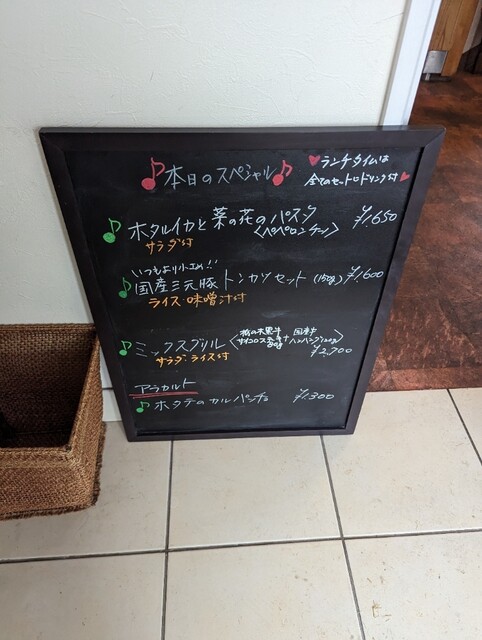 本日のスペシャル
ランチタイムは
全てのセットにドリンク付
ホタルイカと菜の花のパスタ ¥1,650
<ペペロンチーノ>
サラダ付
いつもより小さめ!!
国産三元豚トンカツセット (150g) ¥1,600
ライス・味噌汁付
ミックスグリル
黒毛牛 国産牛
サイコロステーキ+ハンバーグ
80g
サラダ・ライス付
¥2,700
アラカルト
ホタテのカルパッチョ ¥1,300